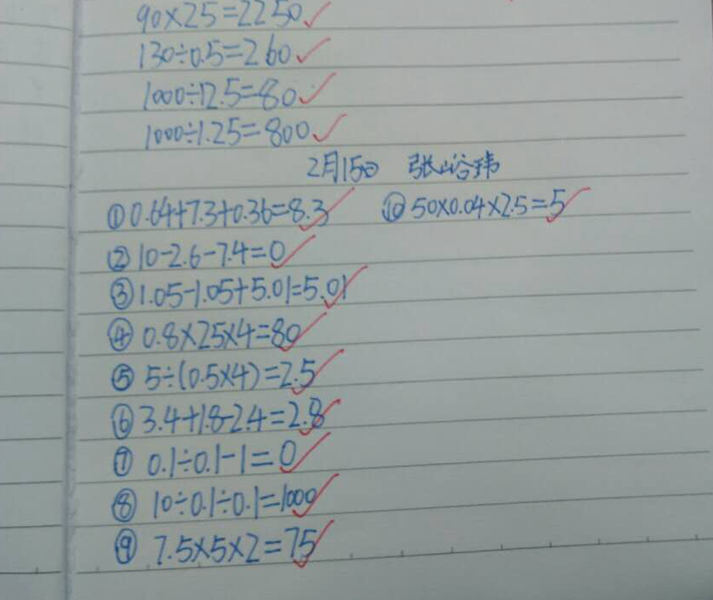 90×25=2250
130÷0.5=260
1000÷12.5=80
1000÷1.25=800
2月15日 张峪玮
①0.64+7.3+0.36=8.3 ⑩50×0.04×2.5=5
②10-2.6-7.4=0
③1.05-1.05+5.01=5.01
④0.8×25×4=80
⑤5÷(0.5×4)=2.5
⑥3.4+1.8-2.4=2.8
⑦0.1÷0.1-1=0
⑧10÷0.1÷0.1=1000
⑨7.5×5×2=75